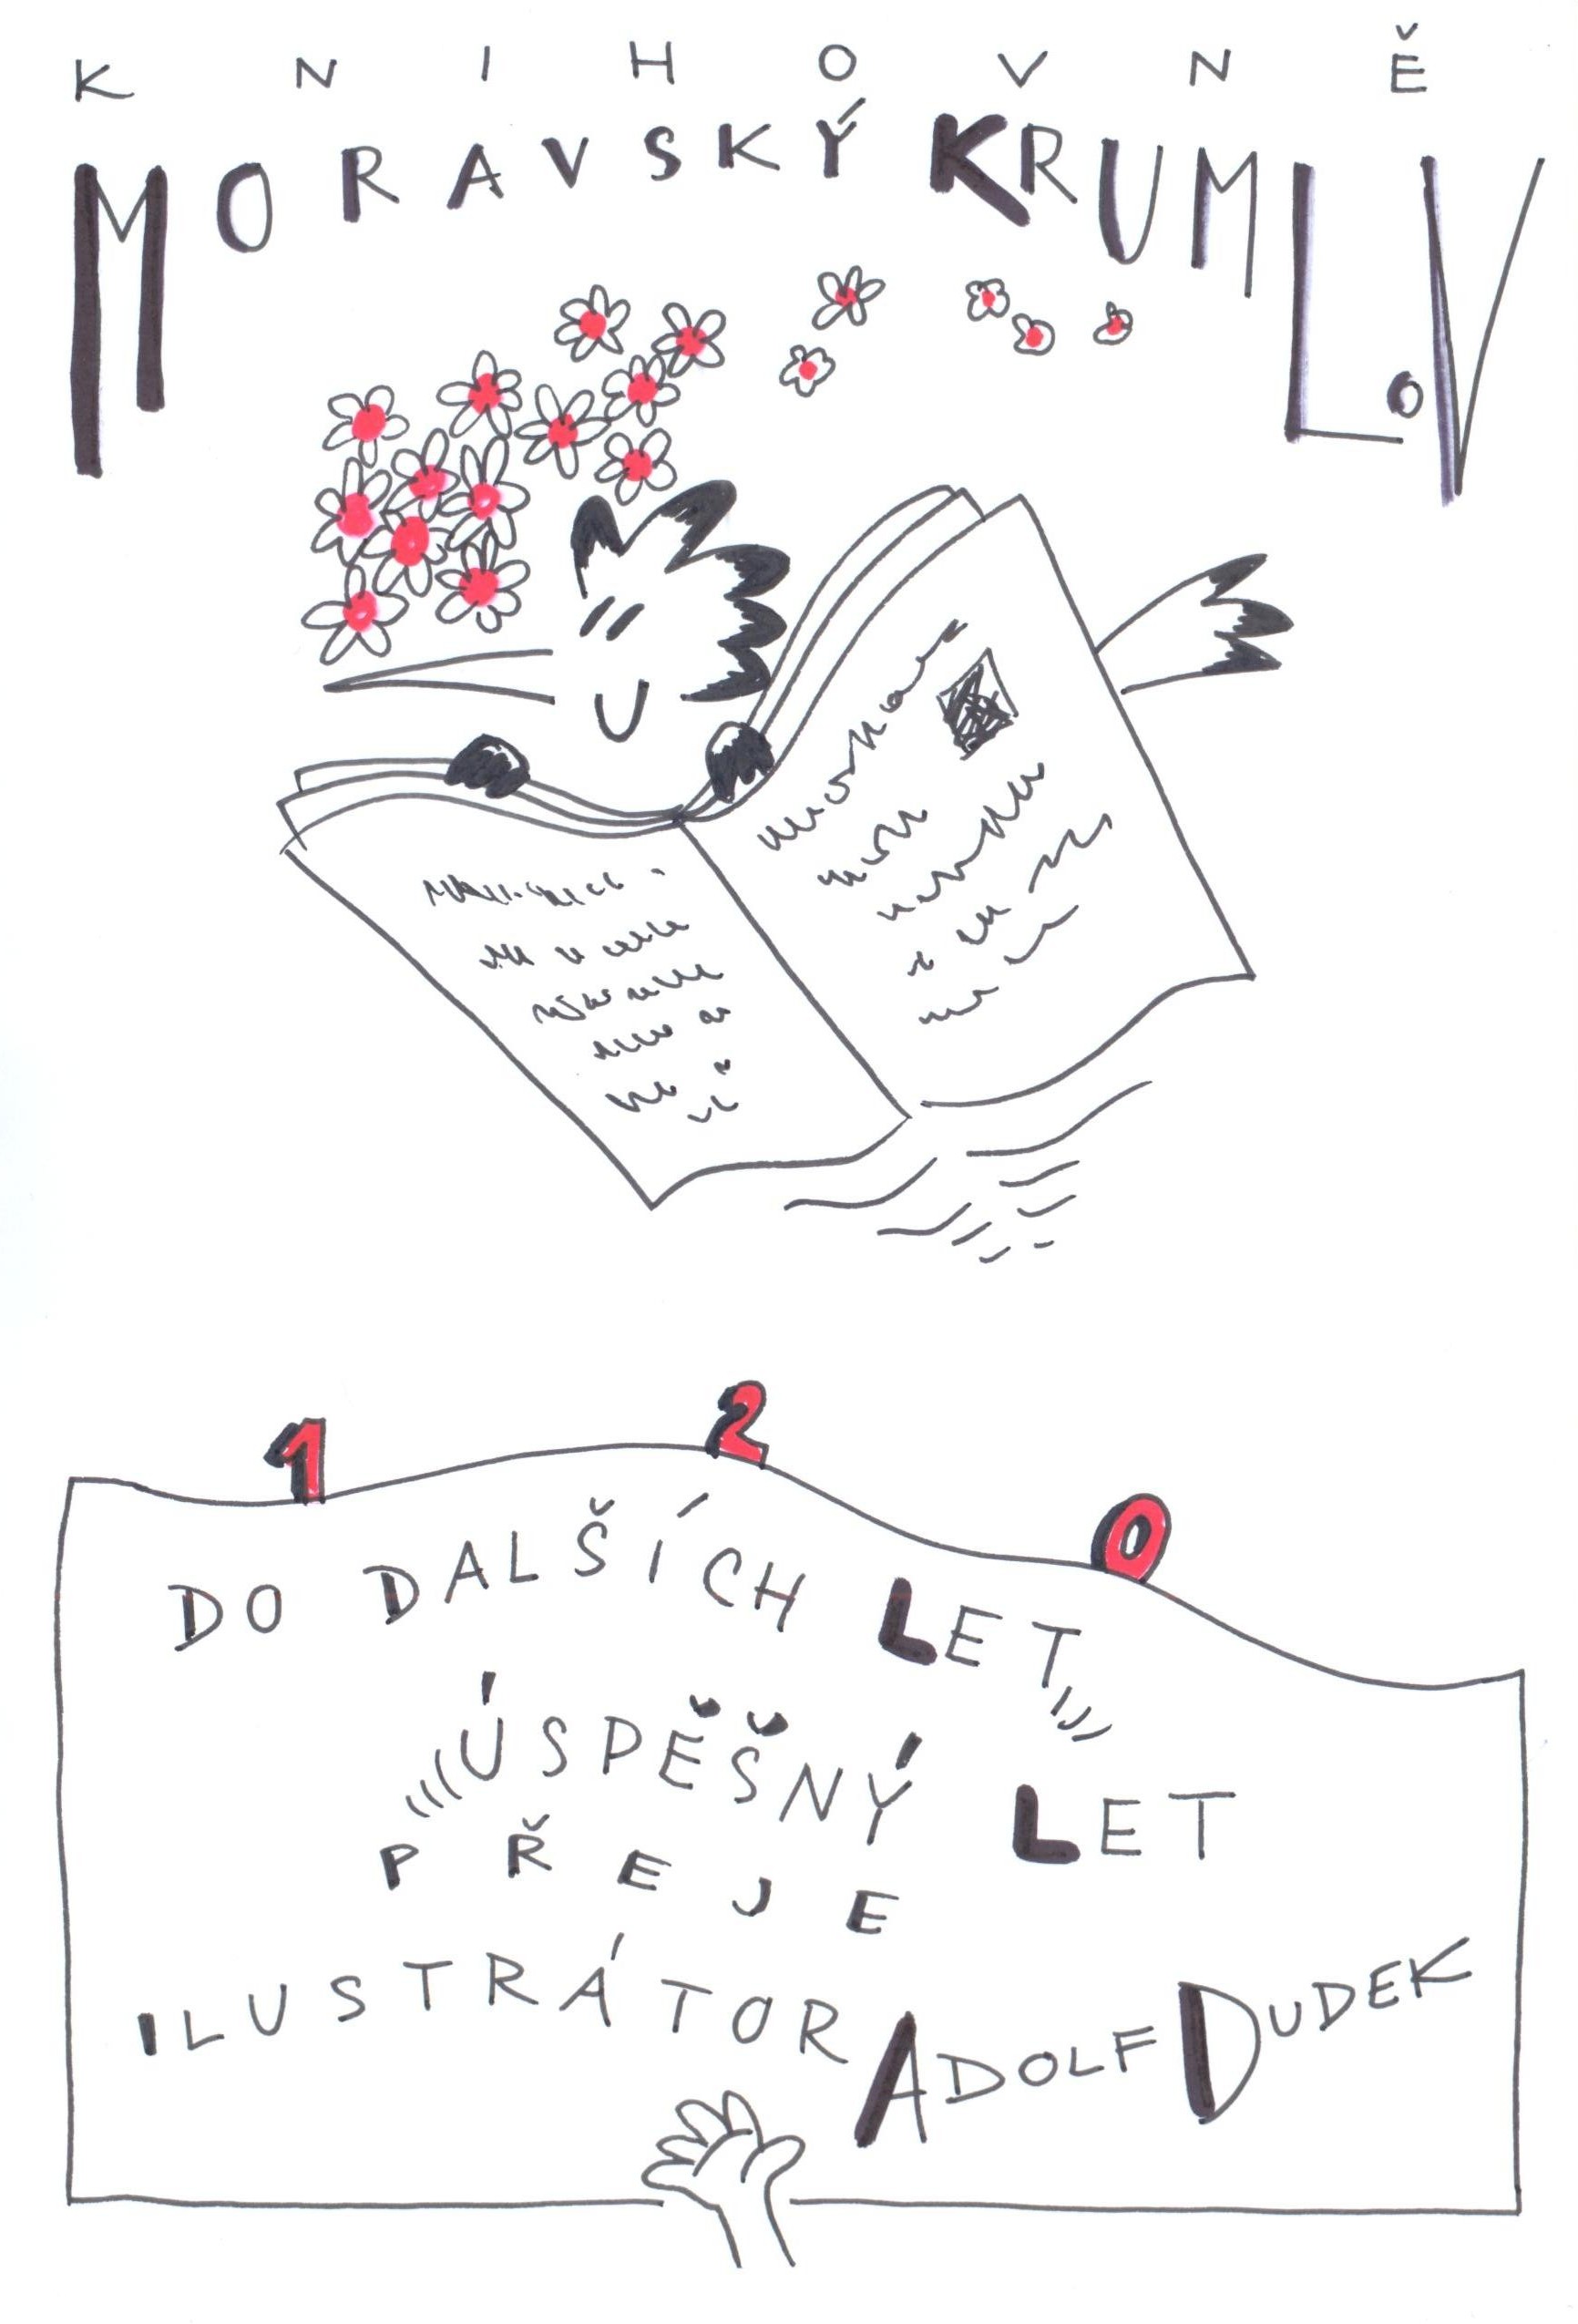 KNIHOVNĚ
MORAVSKÝ KRUMLOV
120
DO DALŠÍCH LET
ÚSPĚŠNÝ LET
PŘEJE
ILUSTRÁTOR ADOLF DUDEK